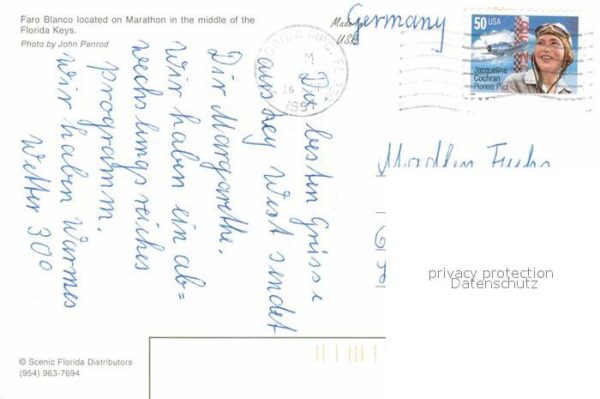 Faro Blanco located on Marathon in the middle of the
Florida Keys.
Photo by John Penrod
Germany
USA
50 USA
Jacqueline
Cochran
Pioneer Pilot
Die besten Grüsse
aus Key West sendet
Dir Margarethe.
Wir haben ein ab=
wechslungsreiches
programm.
wir haben Warmes
Wetter 30°
privacy protection
Datenschutz
© Scenic Florida Distributors
(954) 963-7694